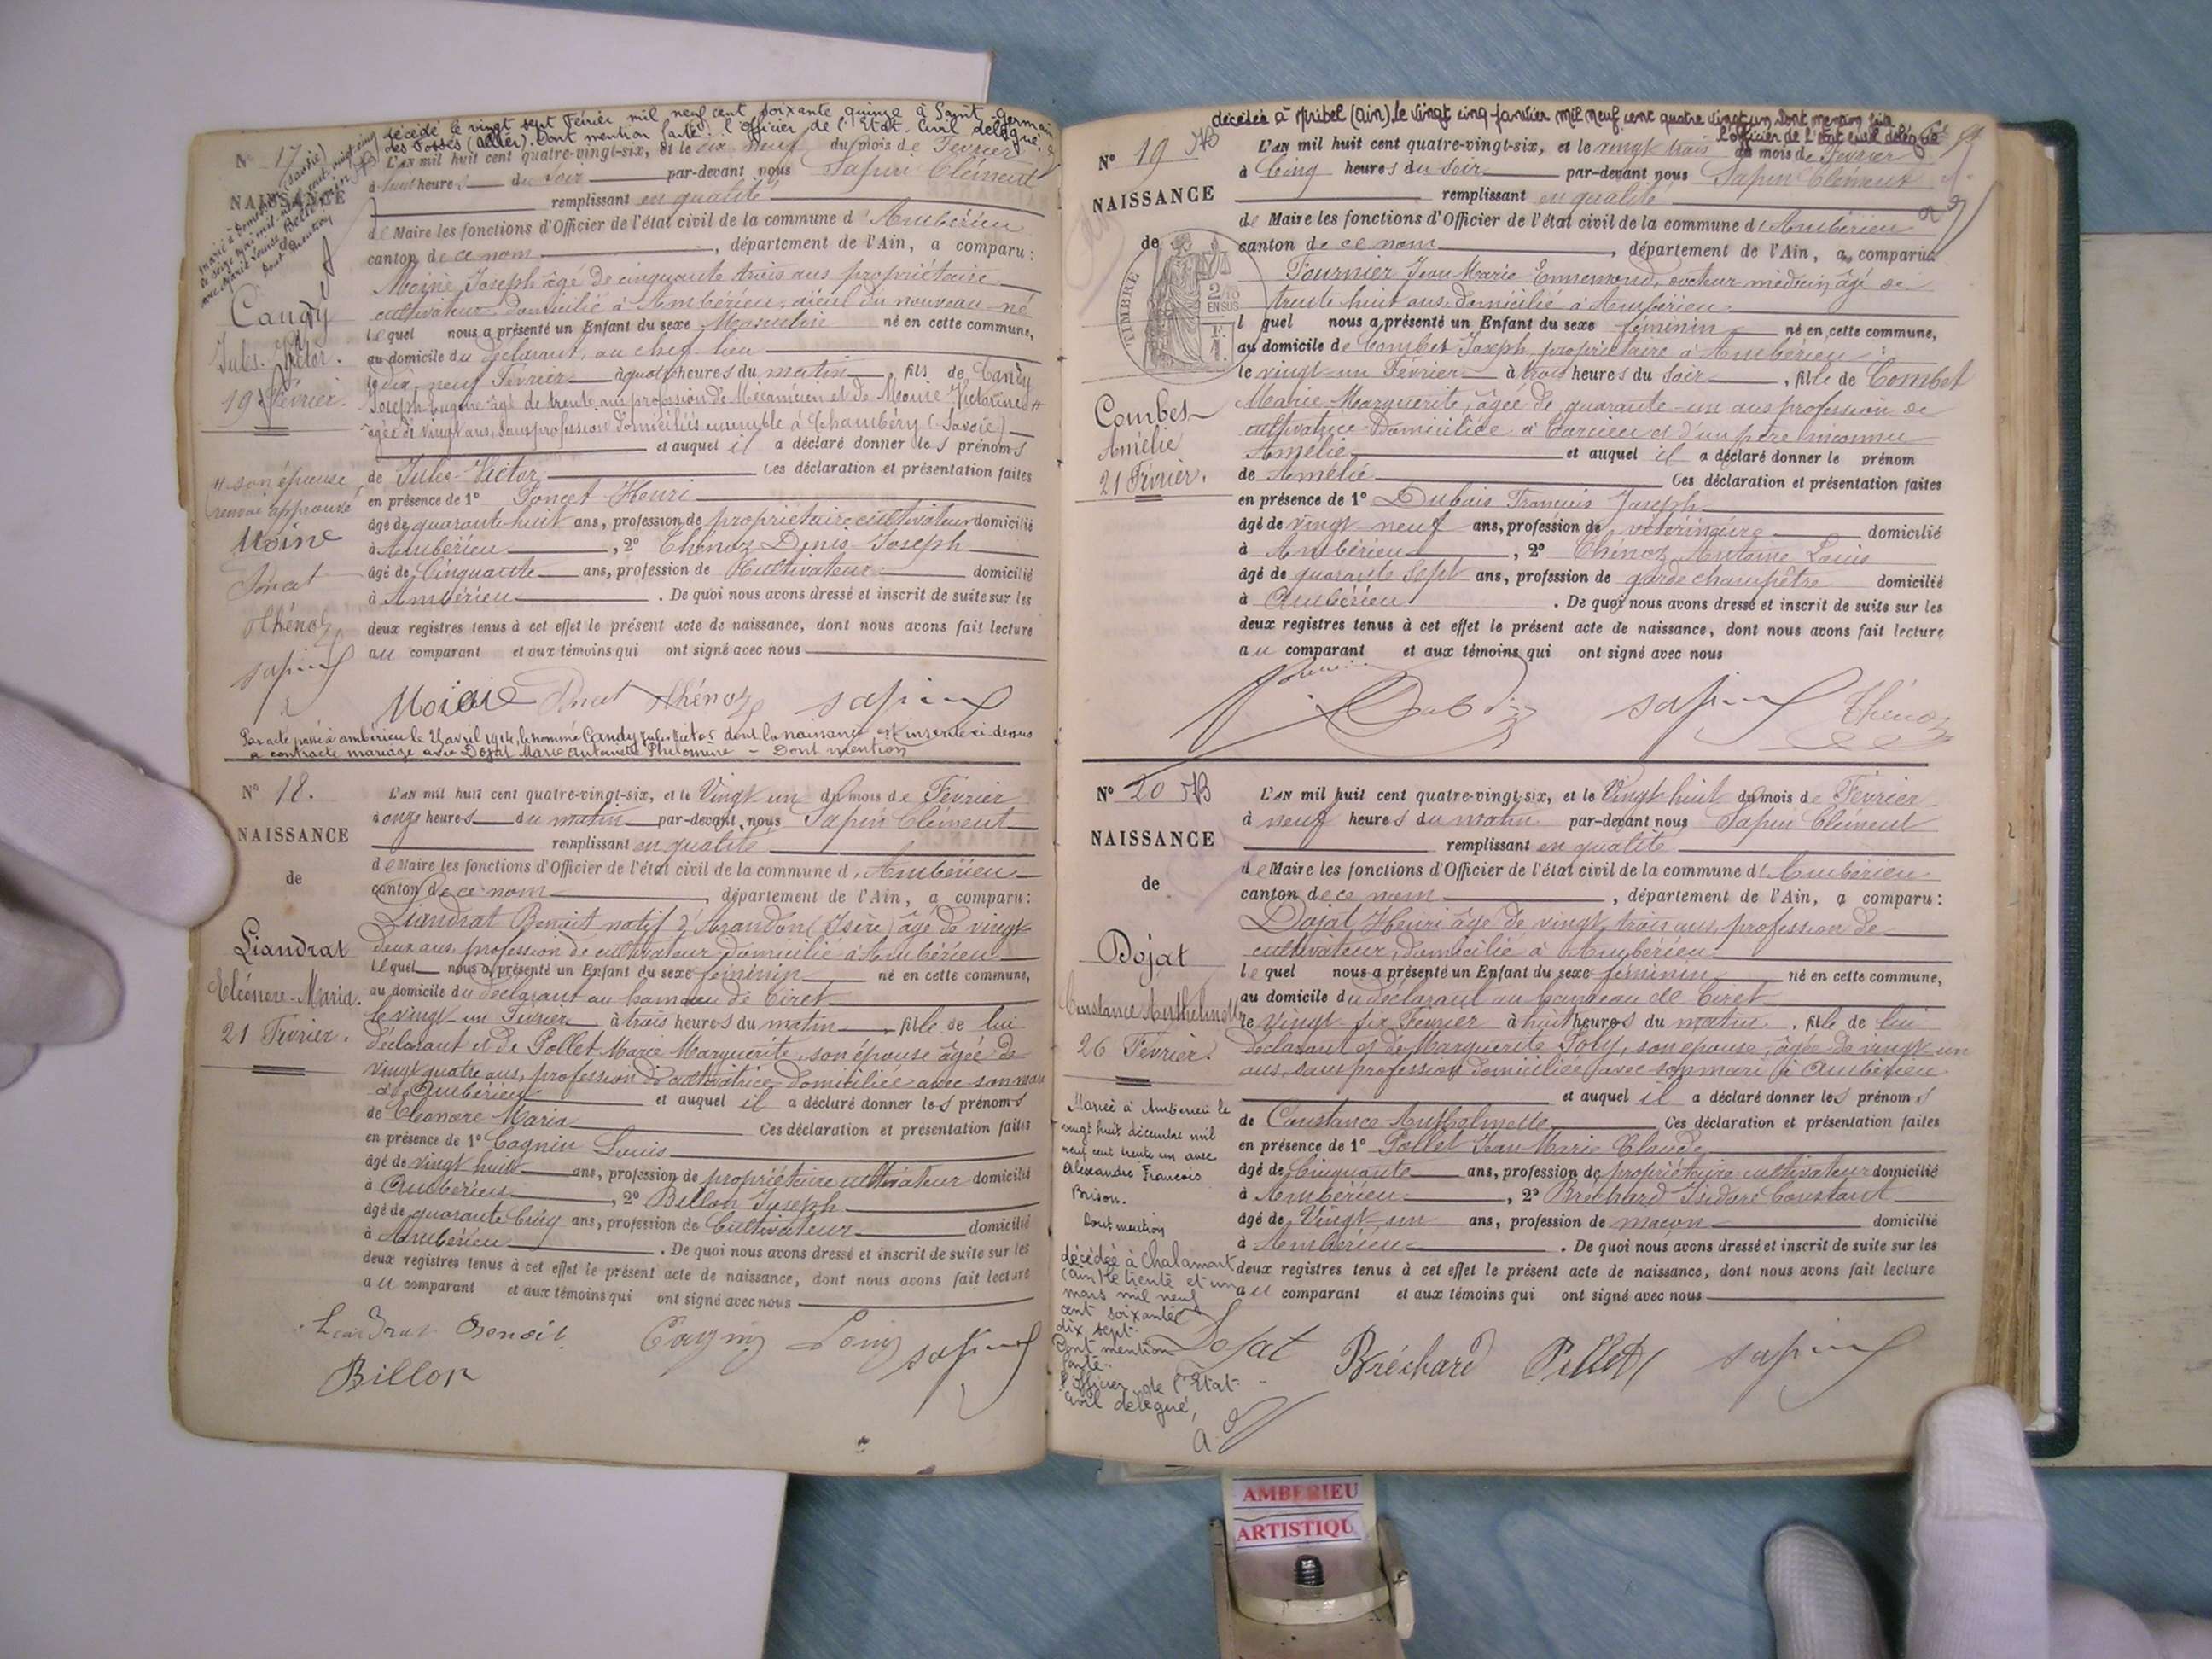 décédé le vingt sept Février mil neuf cent soixante quinze à Saint Germain
des Fossés (Allier). Dont mention faite: l'Officier de l'Etat-Civil délégué,
N° 17
NAISSANCE
L'AN mil huit cent quatre-vingt-six, et le dix neuf du mois de Février
à huit heures du soir par-devant nous Sapin Clément
remplissant en qualité
de Maire les fonctions d'Officier de l'état civil de la commune d'Ambérieu
canton de ce nom, département de l'Ain, a comparu:
Moine Joseph âgé de cinquante trois ans propriétaire
cultivateur domicilié à Ambérieu, aïeul du nouveau-né
lequel nous a présenté un Enfant du sexe Masculin né en cette commune,
au domicile du déclarant, au chef-lieu
le dix neuf Février à quatre heures du matin, fils de Candy
Joseph Eugène âgé de trente ans profession de Mécanicien et de Moine Victorine
âgée de vingt ans, sans profession domiciliés ensemble à Chambéry (Savoie)
et auquel il a déclaré donner les prénoms
de Jules-Victor Ces déclaration et présentation faites
en présence de 1° Poncet Henri
âgé de quarante huit ans, profession de propriétaire cultivateur domicilié
à Ambérieu, 2° Thénoz Denis-Joseph
âgé de Cinquante ans, profession de Cultivateur domicilié
à Ambérieu. De quoi nous avons dressé et inscrit de suite sur les
deux registres tenus à cet effet le présent acte de naissance, dont nous avons fait lecture
au comparant et aux témoins qui ont signé avec nous
Candy
Jules-Victor.
19 Février.
son épouse
renvoi approuvé
Moine
Poncet
Thénoz
Sapin
Moine Poncet Thénoz Sapin
Par acte passé à ambérieu le avril 1914, le nommé Candy Jules Victor dont la naissance est inscrite ci-dessus
a contracté mariage avec Dojat Marie Antoinette Philomène - Dont mention
N° 18.
NAISSANCE
de
Liandrat
Eléonore-Maria.
21 Février.
L'AN mil huit cent quatre-vingt-six, et le Vingt un du mois de Février
à onze heures du matin par-devant nous Sapin Clément
remplissant en qualité
de Maire les fonctions d'Officier de l'état civil de la commune d'Ambérieu
canton de ce nom, département de l'Ain, a comparu:
Liandrat Benoit natif d'Arandon (Isère) âgé de vingt
deux ans, profession de cultivateur domicilié à Ambérieu
lequel nous a présenté un Enfant du sexe féminin né en cette commune,
au domicile du déclarant au hameau de Tiret
le vingt-un Février à trois heures du matin, fille de lui
déclarant et de Pollet Marie Marguerite, son épouse âgée de
vingt quatre ans, profession de cultivatrice domiciliée avec son mari
à Ambérieu et auquel il a déclaré donner les prénoms
de Eléonore Maria Ces déclaration et présentation faites
en présence de 1° Cagnin Louis
âgé de vingt huit ans, profession de propriétaire cultivateur domicilié
à Ambérieu, 2° Billon Joseph
âgé de quarante Cinq ans, profession de Cultivateur domicilié
à Ambérieu. De quoi nous avons dressé et inscrit de suite sur les
deux registres tenus à cet effet le présent acte de naissance, dont nous avons fait lecture
au comparant et aux témoins qui ont signé avec nous
Liandrat Benoit Cagnin Louis Sapin
Billon
décédée à Miribel (Ain), le vingt cinq janvier mil neuf cent quatre vingt un. Dont mention
l'officier de l'état civil délégué
N° 19
NAISSANCE
de
TIMBRE
EN SUS
Combet
Amélie
21 Février.
L'AN mil huit cent quatre-vingt-six, et le vingt trois du mois de Février
à Cinq heures du Soir par-devant nous Sapin Clément
remplissant en qualité
de Maire les fonctions d'Officier de l'état civil de la commune d'Ambérieu
canton de ce nom, département de l'Ain, a comparu
Fournier Jean Marie Ennemond, docteur médecin âgé de
trente huit ans domicilié à Ambérieu
lequel nous a présenté un Enfant du sexe féminin né en cette commune,
au domicile de Combet Joseph, propriétaire à Ambérieu
le vingt-un Février à trois heures du Soir, fille de Combet
Marie-Marguerite, âgée de quarante-un ans profession de
cultivatrice domiciliée à et d'un père inconnu
Amélie et auquel il a déclaré donner le prénom
de Amélie Ces déclaration et présentation faites
en présence de 1° Dubois François Joseph
âgé de vingt neuf ans, profession de vétérinaire domicilié
à Ambérieu, 2° Thénoz Antoine Louis
âgé de quarante Sept ans, profession de garde champêtre domicilié
à Ambérieu. De quoi nous avons dressé et inscrit de suite sur les
deux registres tenus à cet effet le présent acte de naissance, dont nous avons fait lecture
au comparant et aux témoins qui ont signé avec nous
Sapin Thénoz
N° 20
NAISSANCE
de
Dojat
Constance Anthelmette
26 Février.
L'AN mil huit cent quatre-vingt-six, et le Vingt huit du mois de Février
à neuf heures du matin par-devant nous Sapin Clément
remplissant en qualité
de Maire les fonctions d'Officier de l'état civil de la commune d'Ambérieu
canton de ce nom, département de l'Ain, a comparu:
Dojat Henri âgé de vingt trois ans, profession de
cultivateur, domicilié à Ambérieu
lequel nous a présenté un Enfant du sexe féminin né en cette commune,
au domicile du déclarant au hameau de Tiret
le Vingt-six Février à huit heures du matin, fille de lui
déclarant et de Marguerite Joly, son épouse, âgée de vingt-un
ans, sans profession domiciliée avec son mari à Ambérieu
et auquel il a déclaré donner les prénoms
de Constance Anthelmette Ces déclaration et présentation faites
en présence de 1° Pollet Jean Marie Claude
âgé de Cinquante ans, profession de propriétaire cultivateur domicilié
à Ambérieu, 2° Bréchard Isidore Constant
âgé de Vingt un ans, profession de maçon domicilié
à Ambérieu. De quoi nous avons dressé et inscrit de suite sur les
deux registres tenus à cet effet le présent acte de naissance, dont nous avons fait lecture
au comparant et aux témoins qui ont signé avec nous
Mariée à Ambérieu le
vingt huit décembre mil
neuf cent trente un avec
Alexandre François
Brison.
Dont mention
décédée à Chalamont
(Ain) le trente et un
mars mil neuf
cent soixante
dix sept.
Dont mention
faite.
l'Officier de l'Etat-
Civil délégué,
Dojat Bréchard Pollet Sapin
AMBERIEU
ARTISTIQU